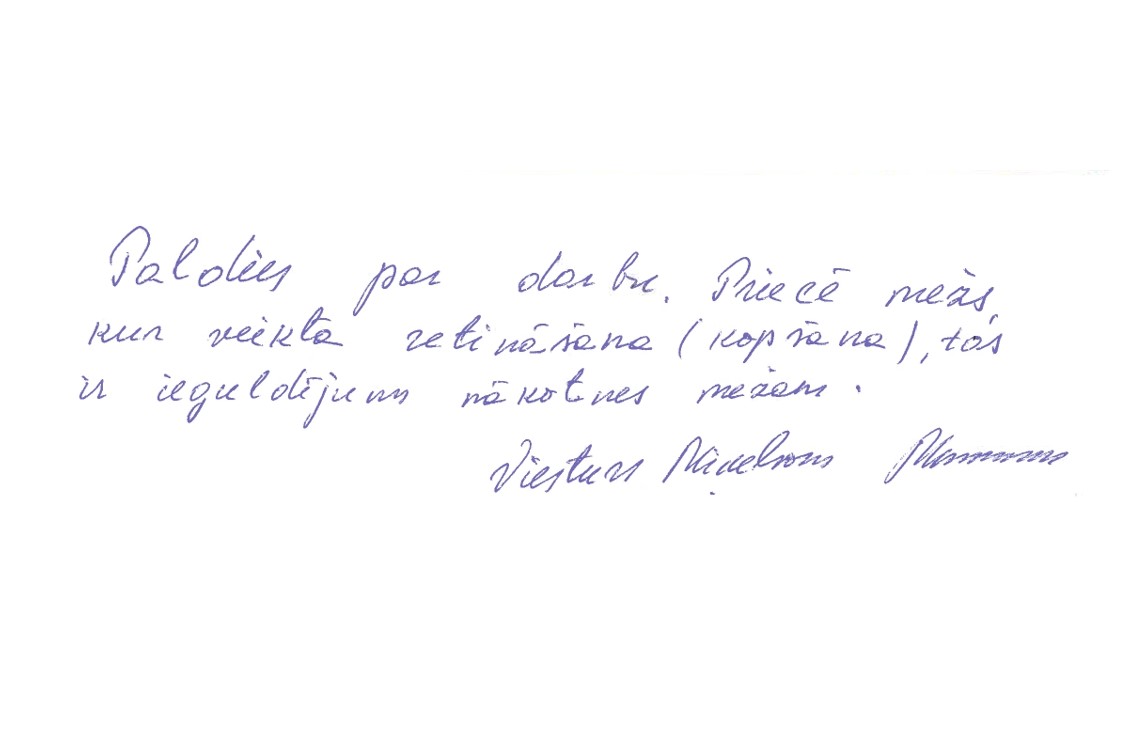 Paldies par darbu. Priecē mežs,
kur veikta retināšana (kopšana), tas
ir ieguldījums nākotnes mežam.
Viesturs